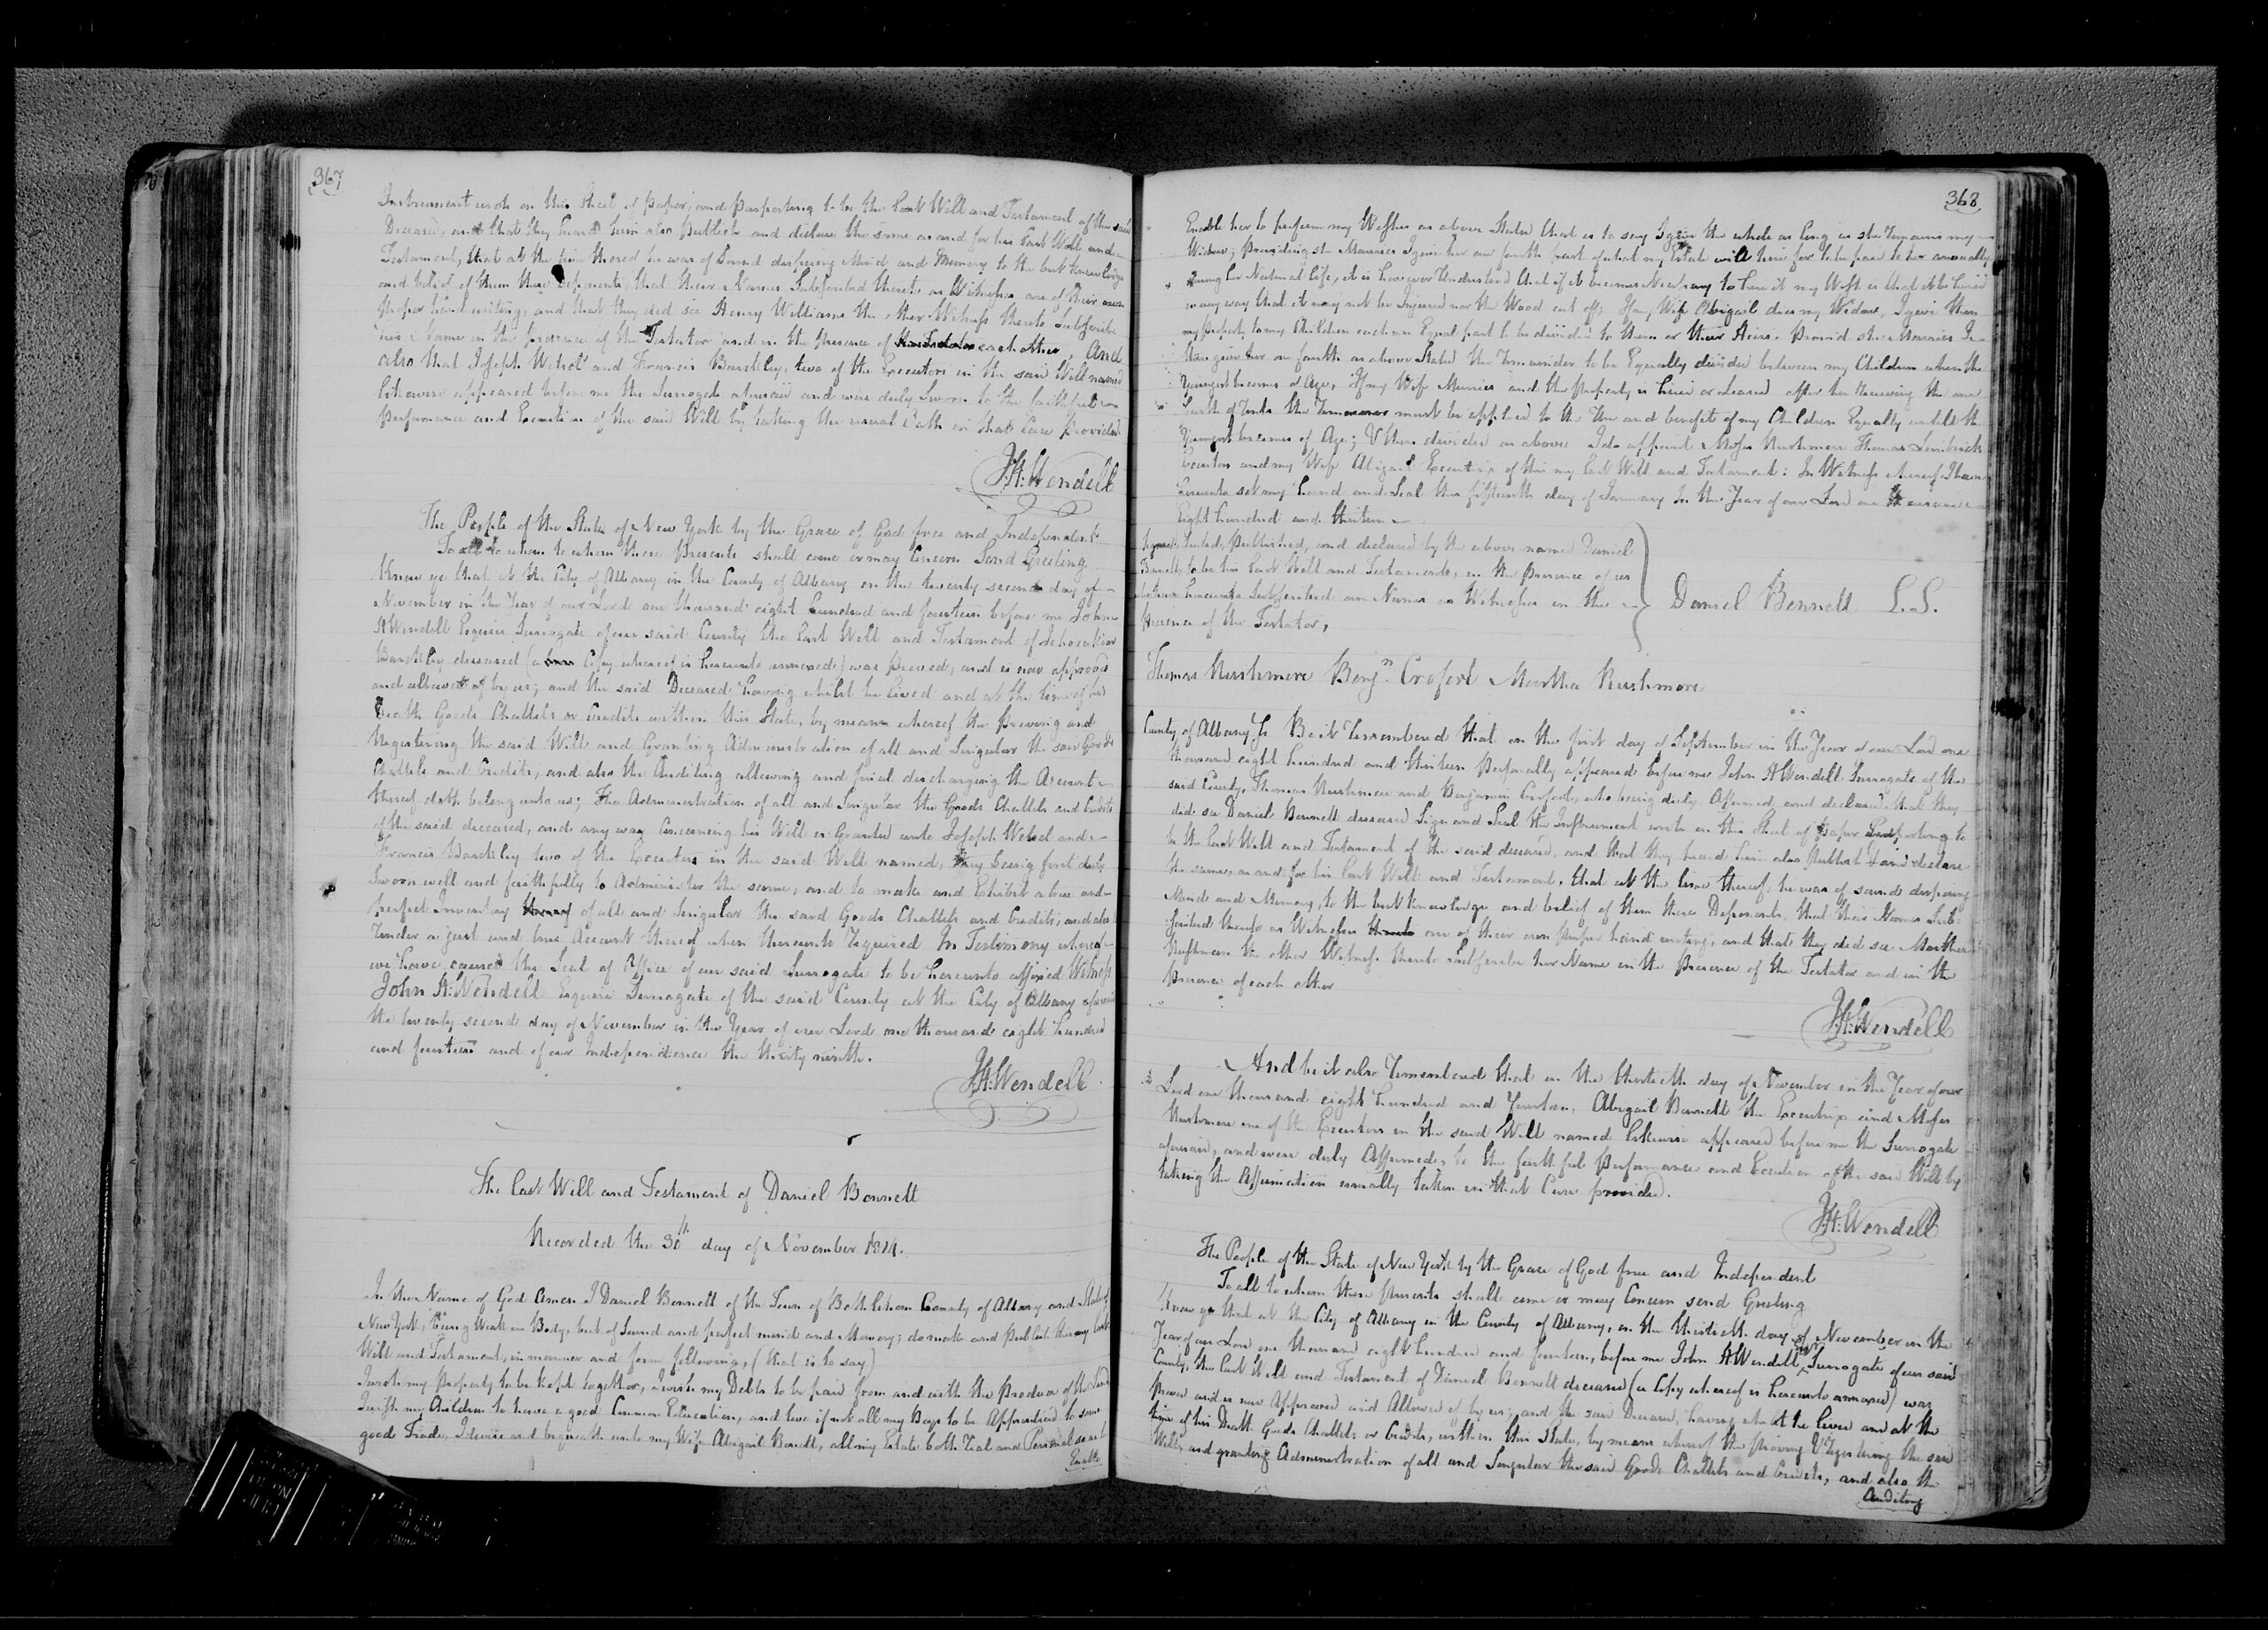 367
Instrument wrote on this Sheet of paper, and purporting to be the Last Will and Testament of the said
Deceased, and that they heard him also Publish and declare the same as and for his Last Will and
Testament, that at the time thereof he was of Sound disposing Mind and Memory to the best knowledge
and belief of them these Deponents, that their Names Subscribed thereto as Witnesses are of their own
proper hand writing, and that they did see Henry Williams the other Witness thereto Subscribe
his Name in the presence of the Testator and in the presence of each other, And
also that Joseph Wetsel and Francis Barckley, two of the Executors in the said Will named
likewise appeared before me the Surrogate aforesaid and were duly Sworn to the faithful
performance and Execution of the said Will by taking the usual Oath in that Case provided
J.A. Wendell
The People of the State of New York by the Grace of God free and Independent
To all to whom to whom these Presents shall come or may Concern Send Greeting
Know ye that at the City of Albany in the County of Albany on the twenty second day of
November in the Year of our Lord one thousand eight hundred and fourteen before me John
A Wendell Esquire Surrogate of our said County the Last Will and Testament of Jehoiakim
Barckley deceased (a Copy whereof is hereunto annexed) was proved, and is now approved
and allowed of by us; and the said Deceased having whilst he lived and at the time of his
Death Goods Chattels or Credits within this State, by means whereof the proving and
Registering the said Will and Granting Administration of all and Singular the said Goods
Chattels and Credits, and also the Auditing allowing and final discharging the Account
thereof doth belong unto us; The Administration of all and Singular the Goods Chattels and Credits
of the said deceased, and any way Concerning his Will is Granted unto Joseph Wetsel and
Francis Barckley two of the Executors in the said Will named, they being first duly
Sworn well and faithfully to Administer the same, and to make and Exhibit a true and
perfect Inventory thereof of all and Singular the said Goods Chattels and Credits, and also
Render a just and true Account thereof when thereunto Required In Testimony whereof
we have caused the Seal of Office of our said Surrogate to be hereunto affixed Witness
John A. Wendell Esquire Surrogate of the said County at the City of Albany aforesaid
the twenty second day of November in the Year of our Lord one thousand eight hundred
and fourteen and of our Independence the thirty ninth.
J.A. Wendell
The Last Will and Testament of Daniel Bennett
Recorded the 30th day of November 1814.
In the Name of God Amen I Daniel Bennett of the Town of Bethlehem County of Albany and State of
New York, being Weak in Body, but of Sound and perfect mind and Memory; do make and publish this my last
Will and Testament, in manner and form following, (that is to say)
I wish my Property to be kept together, I wish my Debts to be paid from and with the produce of the Land
I wish my Children to have a good Common Education, and two if not all my Boys to be Apprenticed to some
good Trade, I devise and bequeath unto my Wife Abigail Bennett, all my Estate both Real and Personal so as to
Enable
368
Enable her to perform my Wishes as above Stated that is to say I give the whole as long as she remains my
Widow; Providing she Marries I give her one fourth part of what my Estate will hire for to be paid to her annually
during her Natural life, it is however Understood that if it becomes Necessary to hire it my Wish is that it be hired
in any way that it may not be Injured nor the Wood cut off; If my Wife Abigail dies my Widow, I give then
my property to my Children each an Equal part to be divided to them or their Heirs. Provid she Marries I
then give her one fourth as above Stated the remainder to be Equally divided between my Children when the
Youngest becomes of Age, If my Wife Marries and the property is hired or Leased after her receiving the one
fourth of Rents the remainder must be applied to the Use and benefit of my Children Equally untill the
Youngest becomes of Age; & then divided as above I do appoint Moses Rushmore Thomas
Executors and my Wife Abigail Executrix of this my Last Will and Testament: In Witness whereof I have
hereunto set my hand and Seal this fifteenth day of January In the Year of our Lord one thousand
Eight hundred and thirteen
Signed, Sealed, Published, and declared by the above named Daniel
Bennett, to be his Last Will and Testament, in the presence of us
who have hereunto Subscribed our Names as Witnesses in the
presence of the Testator,
Daniel Bennett L.S.
Thomas Rushmore Benjn Croford Martha Rushmore
County of Albany Ss Be it remembered that on the first day of September in the Year of our Lord one
thousand eight hundred and thirteen Personally appeared before me John A Wendell Surrogate of the
said County, Thomas Rushmore and Benjamin Croford, who being duly Affirmed, and declared that they
did see Daniel Bennett deceased Sign and Seal the Instrument wrote on this Sheet of paper purporting to
be the Last Will and Testament of the said deceased, and that they heard him also Publish and declare
the same, as and for his Last Will and Testament, that at the time thereof, he was of sound disposing
Mind and Memory, to the best knowledge and belief of them these Deponents, that their Names Sub-
scribed thereto as Witnesses are of their own proper hand writing, and that they did see Martha
Rushmore the other Witness thereto Subscribe her Name in the presence of the Testator and in the
presence of each other
J.A. Wendell
And be it also remembered that on the thirtieth day of November in the Year of our
Lord one thousand eight hundred and fourteen, Abigail Bennett the Executrix and Moses
Rushmore one of the Executors in the said Will named likewise appeared before me the Surrogate
aforesaid, and were duly Affirmed, to the faithful performance and Execution of the said Will by
taking the Affirmation usually taken in that Case provided.
J.A. Wendell
The People of the State of New York by the Grace of God free and Independent
To all to whom these presents shall come or may Concern send Greeting
Know ye that at the City of Albany in the County of Albany, on the thirtieth day of November in the
Year of our Lord one thousand eight hundred and fourteen, before me John A Wendell Esqr Surrogate of our said
County, the Last Will and Testament of Daniel Bennett deceased (a Copy whereof is hereunto annexed) was
proved and is now Approved and Allowed of by us; and the said Deceased, having whilst he lived and at the
time of his Death Goods Chattels or Credits, within this State, by means whereof the proving & registering the said
Will, and granting Administration of all and Singular the said Goods Chattels and Credits, and also the
Auditing